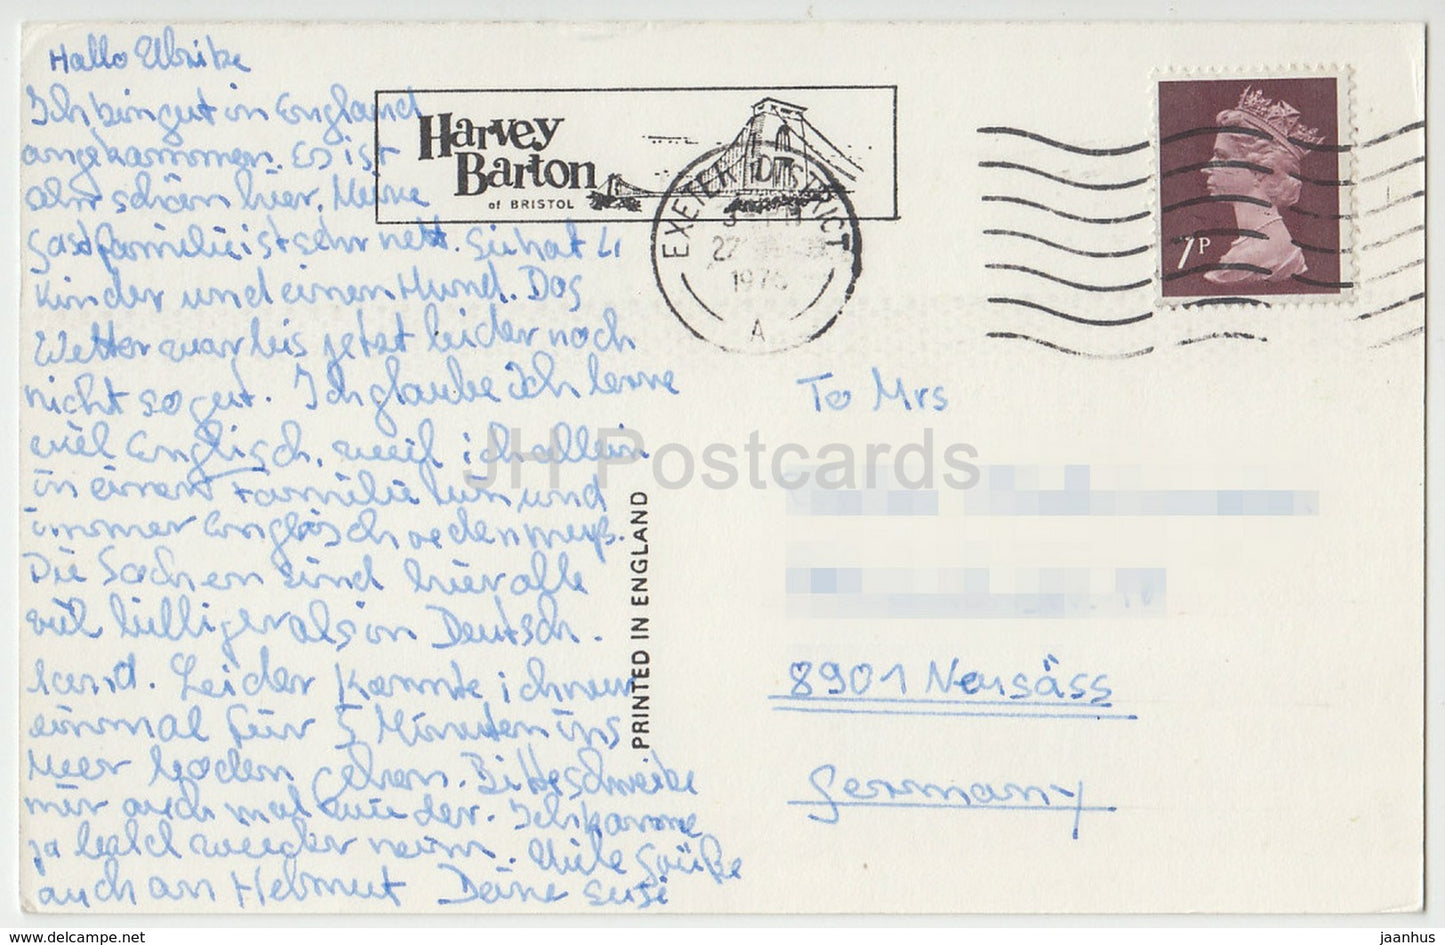 Hallo Ulrike
Ich bin gut in England
angekommen. Es ist
sehr schön hier. Meine
Gastfamilie ist sehr nett. Sie hat 4
Kinder und einen Hund. Das
Wetter war bis jetzt leider noch
nicht so gut. Ich glaube ich lerne
viel Englisch, weil ich allein
in einer Familie bin und
immer Englisch reden muß.
Die Sachen sind hier alle
viel billiger als in Deutsch-
land. Leider konnte ich nur
einmal für 5 Minuten ins
Meer baden gehen. Bitte schreibe
mir auch mal wieder. Ich komme
ja bald wieder heim. Viele Grüße
auch an Helmut Deine Susi
Harvey
Barton
of BRISTOL
EXETER DISTRICT
27
197
A
7P
To Mrs
8901 Neusäss
Germany
PRINTED IN ENGLAND
JH Postcards
www.delcampe.net
jaanhus